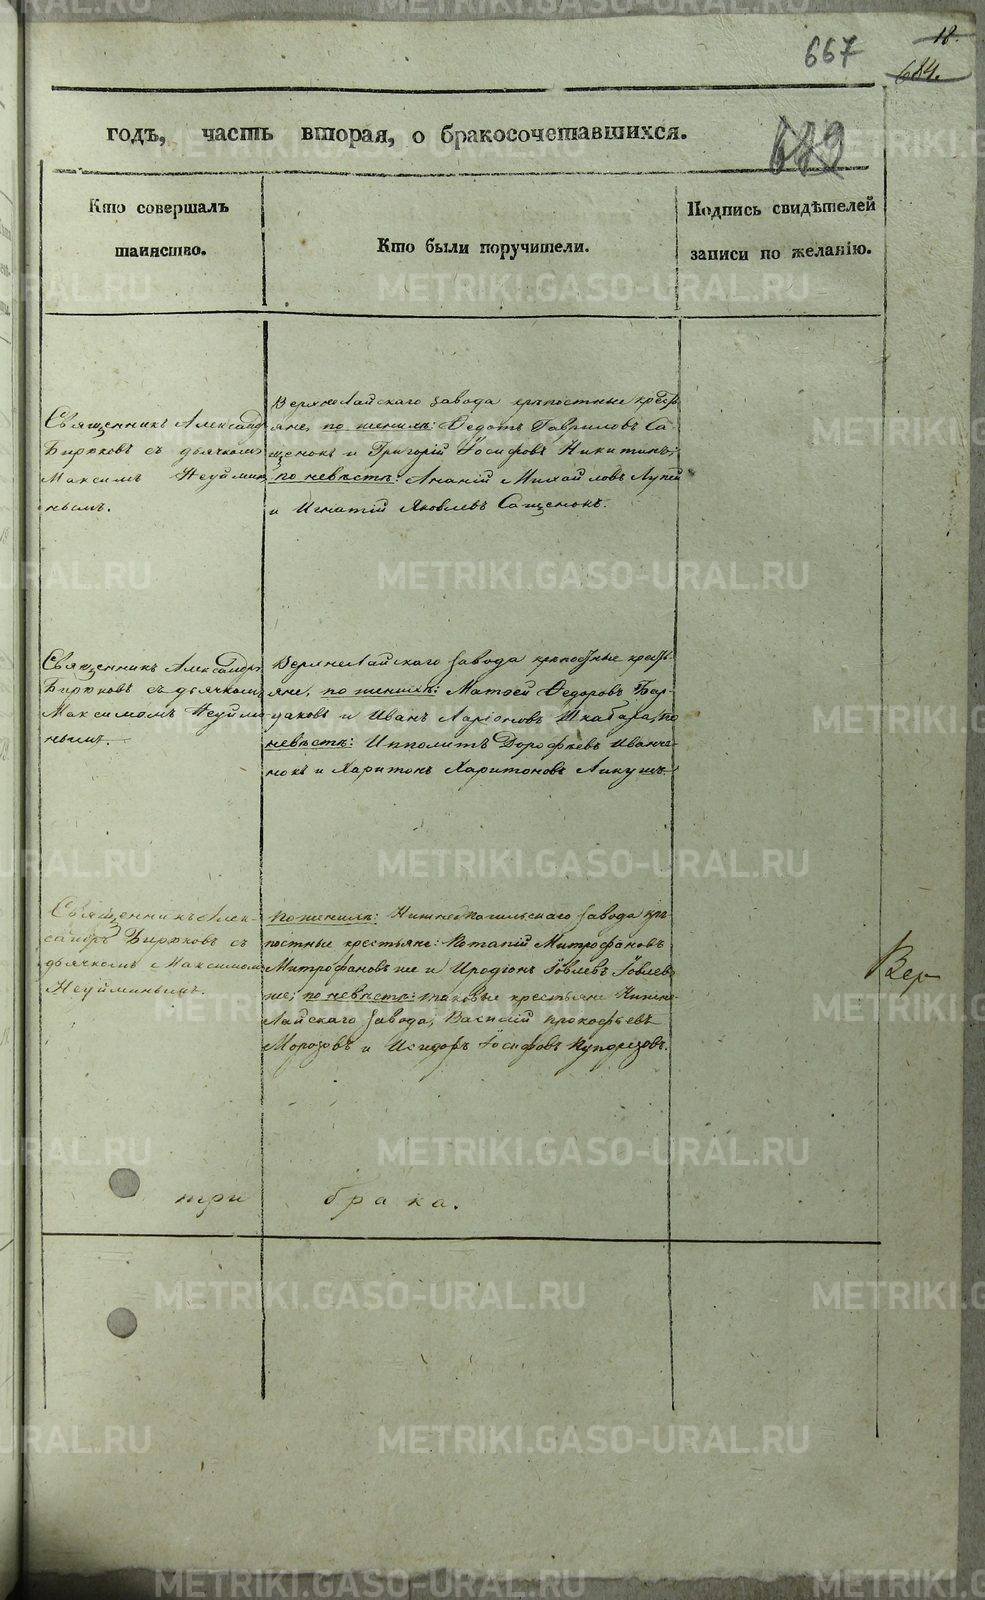 667
18.
684.
689
годъ, часть вторая, о бракосочетавшихся.
Кто совершалъ
таинство.
Кто были поручители.
Подпись свидѣтелей
записи по желанію.
Священникъ Александ
Бирюковъ съ дьячкомъ
Максимъ Неуймин
нымъ.
Верхнелайскаго завода крѣпостные кресть
яне, по женихѣ: Ѳедотъ Гавриловъ Са-
щенокъ и Григорій Іосифовъ Никитинъ;
по невѣстѣ: Ананій Михайловъ
и Игнатій Яковлевъ Сащенокъ.
Священникъ Александръ
Бирюковъ съ дьячкомъ
Максимомъ Неуйми
нымъ.
Верхнелайскаго завода крѣпостные кресть
яне, по женихѣ: Матѳей Ѳедоровъ Бар-
даковъ и Иванъ Ларіоновъ Шкабара, по
невѣстѣ: Ипполитъ Дорофѣевъ Иванче-
нокъ и Харитонъ Харитоновъ
Священникъ Алек-
сандръ Бирюковъ съ
дьячкомъ Максимом
Неуйминымъ.
По женихѣ: Нижнетагильскаго завода крѣ-
постные крестьяне: Потапій Митрофановъ
Митрофановъ же и Иродіонъ Іовлевъ Іовлев
же; по невѣстѣ: таковые крестьяне Нижне
Лайскаго завода, Василій Прокофьевъ
Морозовъ и Исидоръ Іосифовъ
Вер
три брака.
METRIKI.GASO-URAL.RU